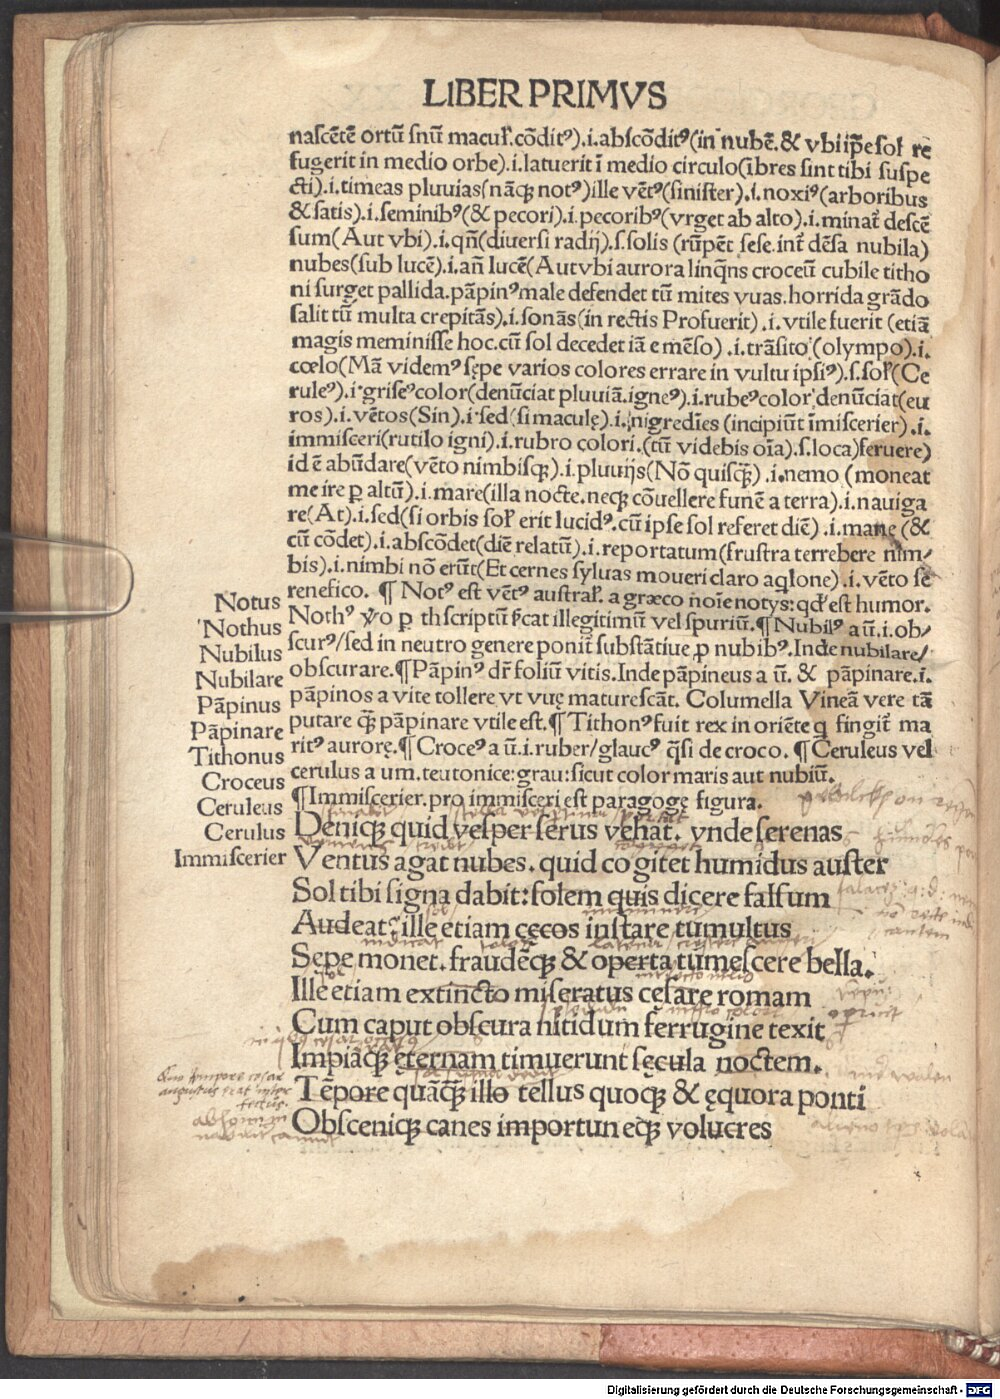 LIBER PRIMVS
nascētē ortū snū macuł.cōditꝰ).i.abscōditꝰ(in nubē.& vbi ip̄e sol re
fugerit in medio orbe).i.latuerit ī medio circulo(ībres sint tibi suspe
cti).i.timeas pluuias(nāqꝫ notꝰ)ille vētꝰ(sinister).i.noxiꝰ(arboribus
& satis).i.seminibꝰ(& pecori).i.pecoribꝰ(vrget ab alto).i.minat᷑ descē
sum(Aut vbi).i.qn̄(diuersi radij).s.solis (rūpēt sese.int᷑ dēsa nubila)
nubes(sub lucē).i.an̄ lucē(Aut vbi aurora linq̄ns croceū cubile titho
ni surget pallida.pāpinꝰ male defendet tū mites vuas.horrida grādo
salit tū multa crepitās).i.sonās(in rectis Profuerit).i.vtile fuerit (etiā
magis meminisse hoc.cū sol decedet iā emēso).i.trāsito (olympo).i.
cœlo(Mā videmꝰ sępe varios colores errare in vultu ipsiꝰ).s.soł(Ce
ruleꝰ).i.griseꝰ color(denūciat pluuiā.igneꝰ).i.rubeꝰ color denūciat(eu
ros).i.vētos(Sin).i sed(si maculę).i.nigredīes (incipiūt īmiscerier).i.
immisceri(rutilo igni).i.rubro colori.(tū videbis oīa).s.loca)feruere)
id ē abūdare(vēto nimbisqꝫ).i.pluuijs(Nō quisqꝫ̄).i.nemo (moneat
me ire ꝑ altū).i.mare(illa nocte.neqꝫ cōuellere funē a terra).i.nauiga
re(At).i.sed(si orbis soł erit lucidꝰ.cū ipse sol referet diē).i.mane (&
cū cōdet).i.abscōdet(diē relatū).i.reportatum(frustra terrebere nim⸗
bis).i.nimbi nō erūt(Et cernes syluas moueri claro aq̇lone).i.vēto se
renefico. ¶ Notꝰ est vētꝰ austrał. a græco noīe notys:qđ est humor.
Nothꝰ ꝟo ꝑ th scriptū s̄cat illegitimū vel spuriū.¶ Nubilꝰ a ū.i.ob⸗
scurꝰ/sed in neutro genere ponit᷑ substātiue ꝓ nubibꝰ.Inde nubilare/
obscurare.¶ Pāpinꝰ dr̄ foliū vitis.Inde pāpineus a ū. & pāpinare.i.
pāpinos a vite tollere vt vuę maturescāt. Columella Vineā vere tā
putare qꝫ̄ pāpinare vtile est.¶ Tithonꝰ fuit rex in oriēte q̇ fingit᷑ ma
ritꝰ aurorę.¶ Croceꝰ a ū.i.ruber/glaucꝰ q̇si de croco. ¶ Ceruleus vel
cerulus a um.teutonice:grau:sicut color maris aut nubiū.
¶Immiscerier.pro immisceri est paragoge figura.
Notus
Nothus
Nubilus
Nubilare
Pāpinus
Pāpinare
Tithonus
Croceus
Ceruleus
Cerulus
Immiscerier
Deniqꝫ quid vesper serus vehat. vnde serenas
Ventus agat nubes. quid cogitet humidus auster
Sol tibi signa dabit: solem quis dicere falsum
Audeat: ille etiam cęcos instare tumultus
Sepe monet. fraudēqꝫ & operta tumescere bella.
Ille etiam extincto miseratus cęsare romam
Cum caput obscura nitidum ferrugine texit
Impiaqꝫ ęternam timuerunt sęcula noctem.
Tēpore quāqꝫ̄ illo tellus quoqꝫ & ęquora ponti
Obsceniqꝫ canes importuneqꝫ volucres
Digitalisierung gefördert durch die Deutsche Forschungsgemeinschaft - DFG